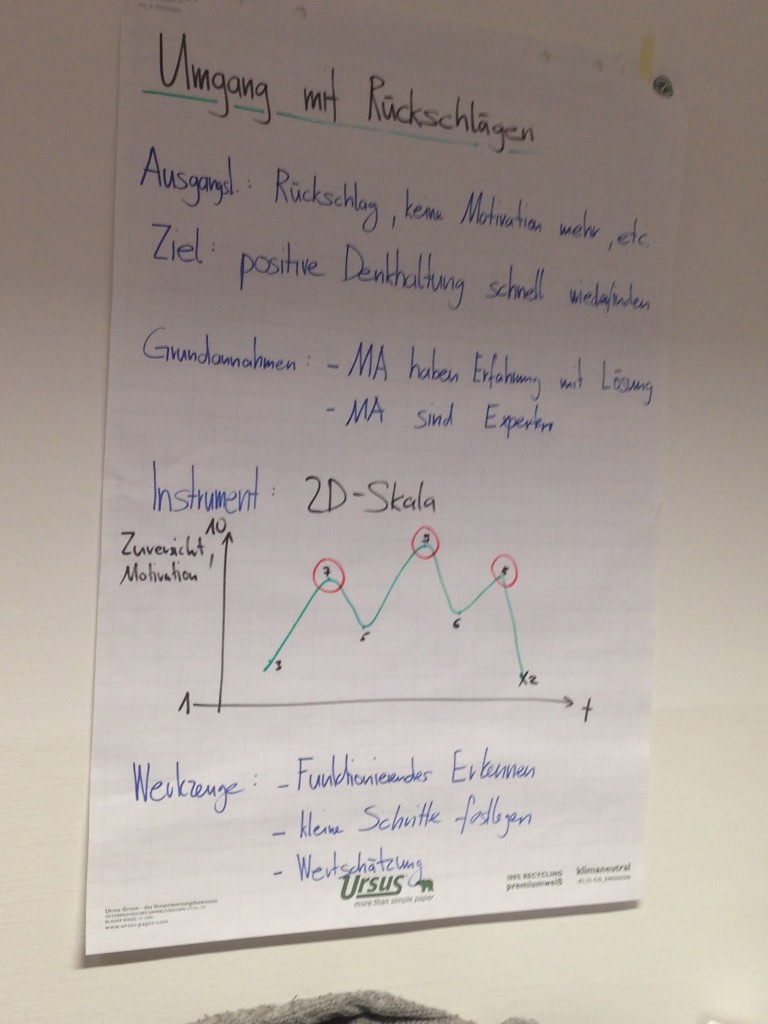 Umgang mit Rückschlägen
Ausgangsl.: Rückschlag, keine Motivation mehr, etc.
Ziel: positive Denkhaltung schnell wiederfinden
Grundannahmen: - MA haben Erfahrung mit Lösung
- MA sind Experten
Instrument: 2D-Skala
10
Zuversicht,
Motivation
7
9
8
5
6
3
x2
1
t
Werkzeuge: - Funktionierendes Erkennen
- kleine Schritte festlegen
- Wertschätzung
Ursus
more than simple paper
100% RECYCLING
premiumweiß
klimaneutral
Ursus Green - die Verantwortungsbewussten
www.ursus-paper.com